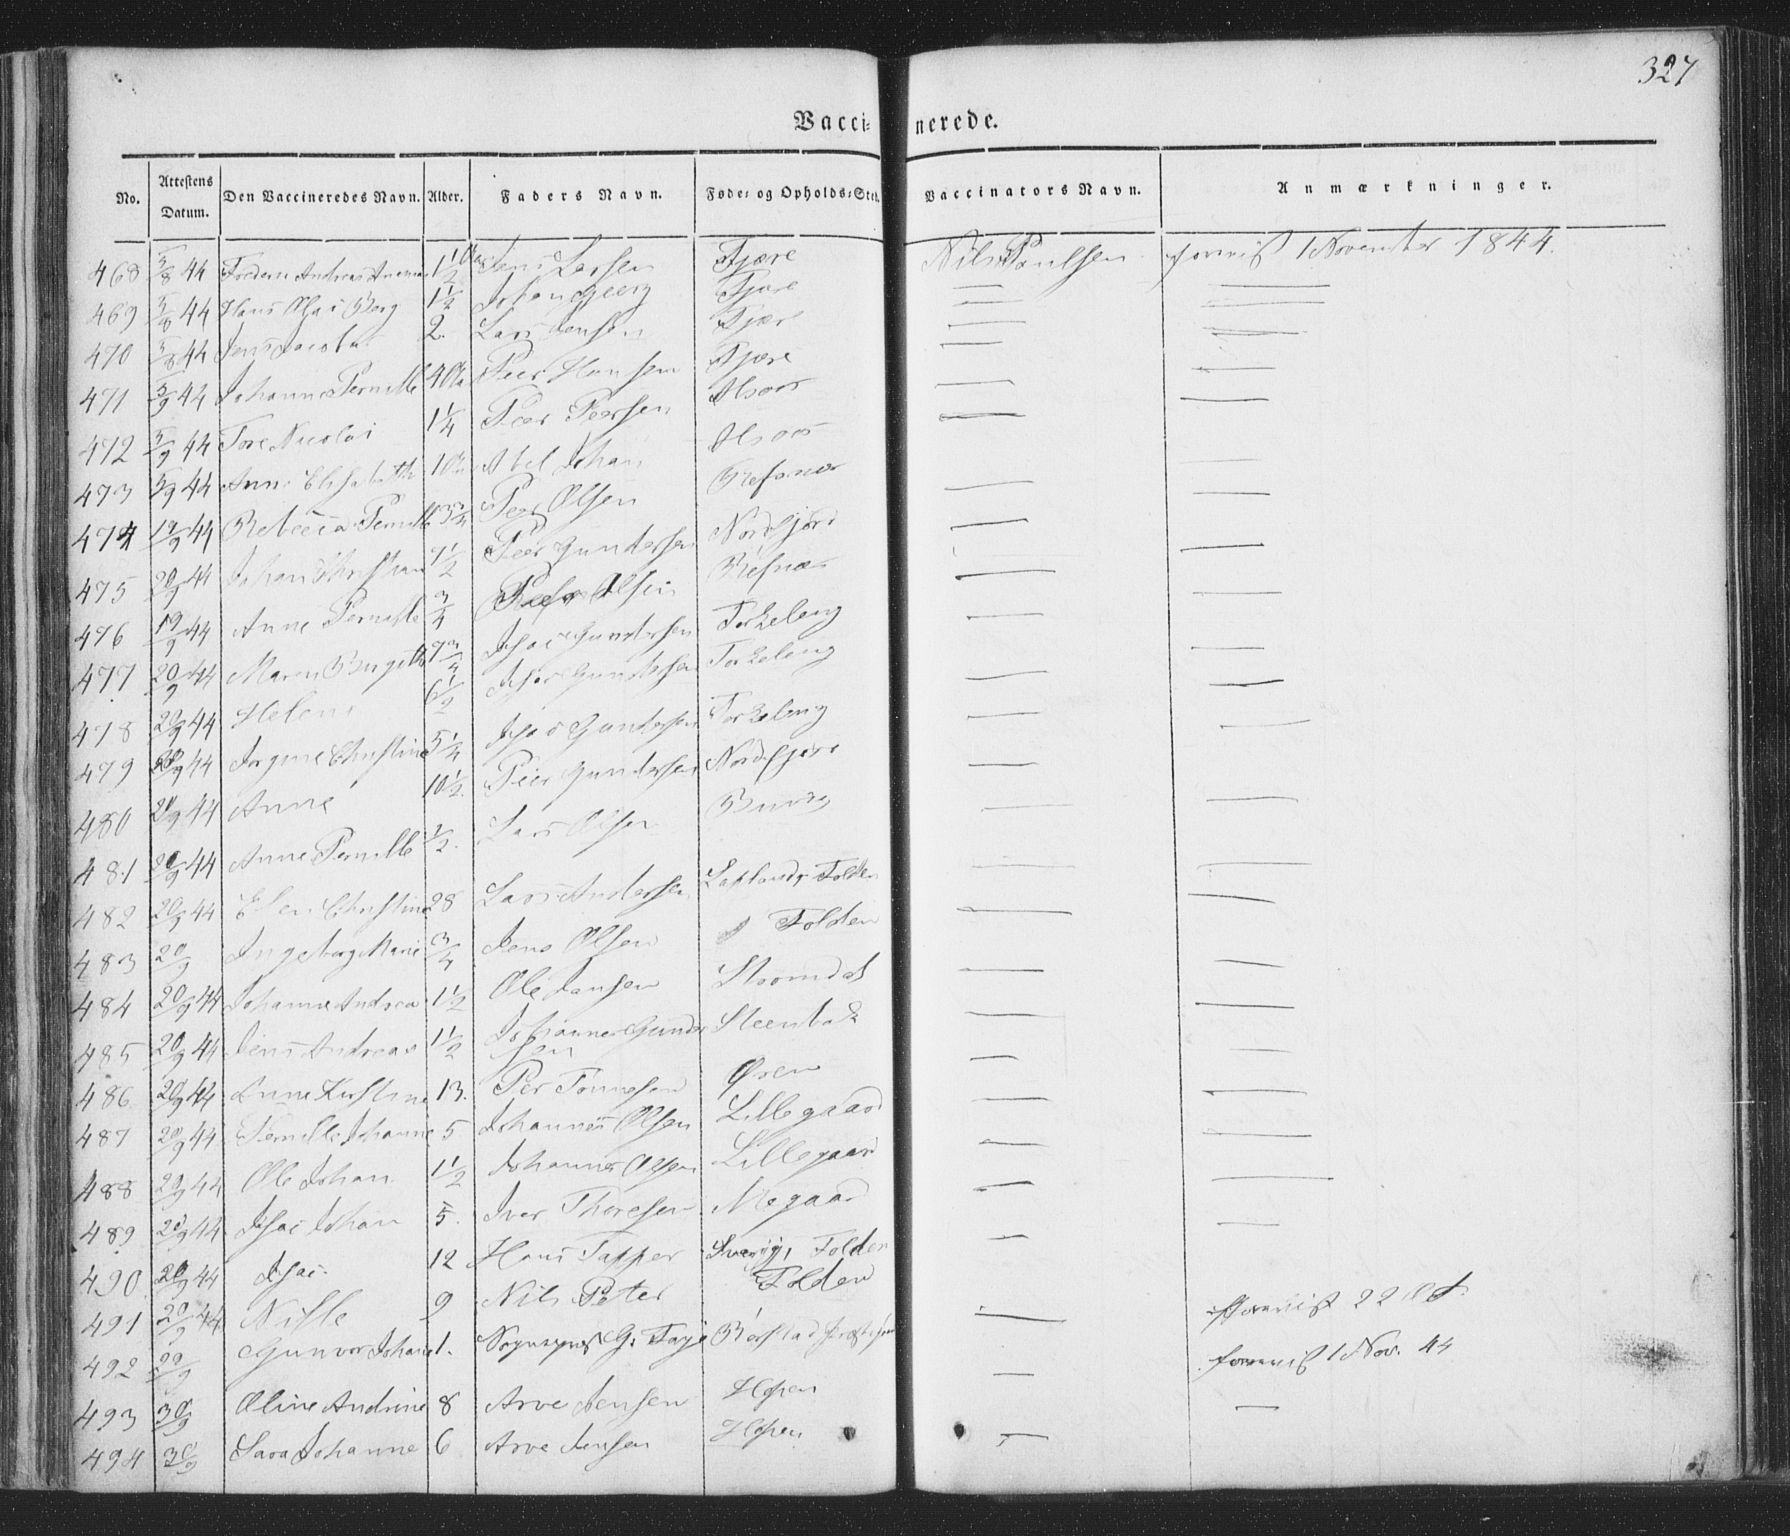 327
Vaccinerede.
No. Attestens Datum. Den Vaccineredes Navn. Alder. Faders Navn. Føde- og Opholds-Sted. Vaccinators Navn. Anmærkninger.
468 5/8 44 Andreas 1 1/2 Jens Larsen Fjære Nils Paulsen forevist 1 November 1844.
469 5/8 44 Hans Olai Berg 1 1/2 Johan Berg Fjære
470 5/8 44 Jens Jacob 2. Lars Jensen Fjære
471 5/9 44 Johanne Pernille 4 Peer Hansen Fjære
472 5/9 44 Tore Nicolai 1 1/4 Peer Peersen
473 5/9 44 Anne Elisabeth 10 Abel Johan
474 19/9 44 Rebecca Pernille 3 3/4 Peer Olsen Refsnæs
475 20/9 44 Johan Christian 7 1/2 Peer Gundersen Nordfjord
476 19/9 44 Anne Pernille 3/4 Peer Olsen Refsnæs
477 20/9 44 Maren Birgithe 9 3/4 Isac Gundersen Torkeleng
478 20/9 44 Helene 6 1/2 Isac Gundersen Torkeleng
479 20/9 44 Jørgine Christine 5 1/4 Isac Gundersen Torkeleng
480 20/9 44 Anne 10 1/2. Peer Gundersen Nordfjord
481 20/9 44 Anne Pernille 1/2. Lars Olsen
482 20/9 44 Elen Christine 28 Lars Andersen Laplands Folden
483 20/9 Ingeborg Marie 3/4 Jens Olsen Folden
484 20/9 44 Johanne Andrea 1 1/2 Ole Jansen Strømdal
485 20/9 44 Jens Andreas 1 1/2 Johannes Gundersen Steenbak
486 20/9 44 Anne Kirstine 13. Per Tønnesen Øren
487 20/9 44 Pernille Johanne 5 Johannes Olsen Lillegaard
488 20/9 44 Ole Johan 1 1/2 Johannes Olsen Lillegaard
489 20/9 44 Isac Johan 5. Iver Thoresen Megaard
490 20/9 44 Isac. 12 Hans Tapper Folden
491 20/9 44 Nille 9 Nils Peter Folden
forevist 22 Oct.
492 20/9 Gunvor Johanne 1. Sogneprest G: Faye forevist 1 Nov. 44
493 30/9 Oline Andrine 8 Arve Jensen Hopen
494 30/9 Sara Johanne 6 Arve Jensen Hopen